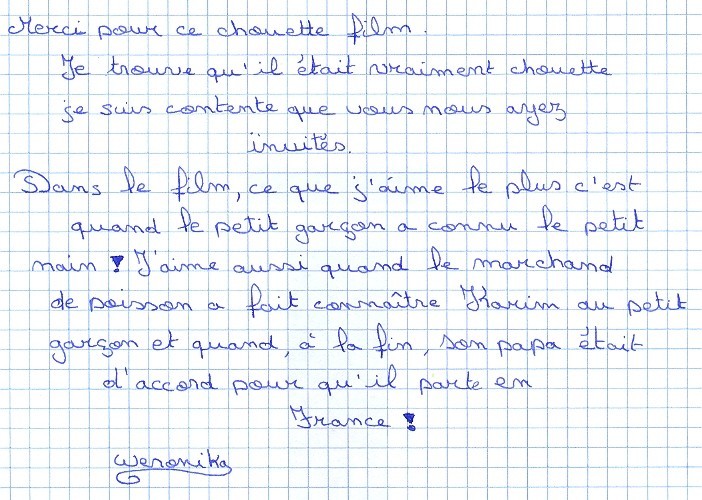 Merci pour ce chouette film.
Je trouve qu'il était vraiment chouette
je suis contente que vous nous ayez
invités.
Dans le film, ce que j'aime le plus c'est
quand le petit garçon a connu le petit
nain ! J'aime aussi quand le marchand
de poisson a fait connaître Karim au petit
garçon et quand, à la fin, son papa était
d'accord pour qu'il parte en
France !
Weronika